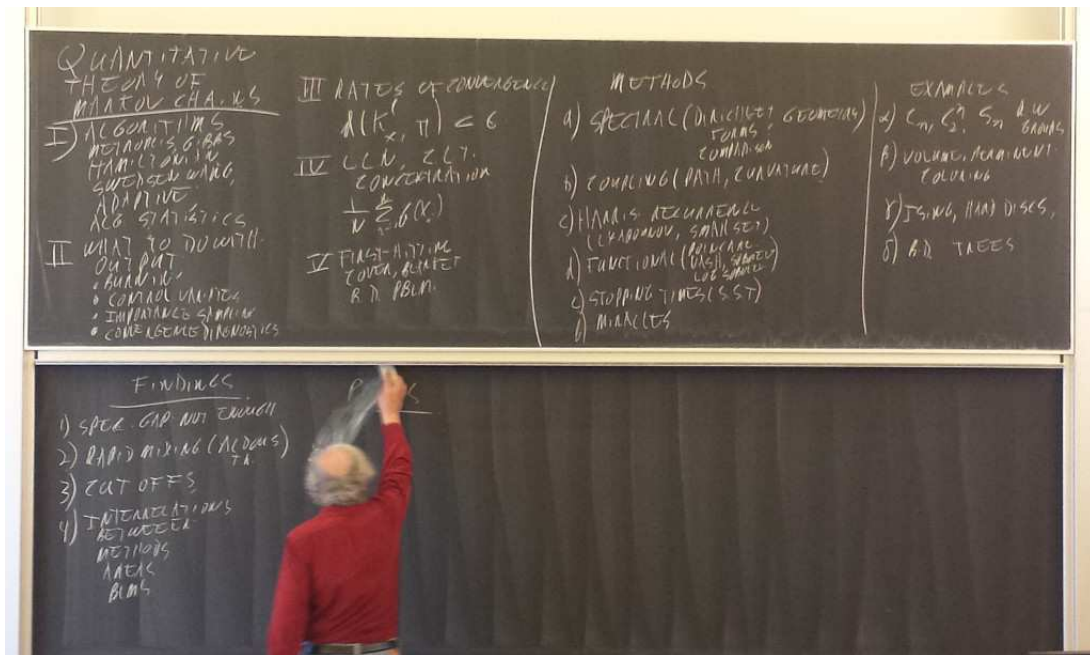 QUANTITATIVE
THEORY OF
MARKOV CHAINS
I) ALGORITHMS
METROPOLIS, GIBBS
HAMILTONIAN
SWENDSEN WANG,
ADAPTIVE
ALG STATISTICS
II WHAT TO DO WITH
OUTPUT
• BURNIN
• CONTROL VARIATES
• IMPORTANCE SAMPLING
• CONVERGENCE DIAGNOSTICS
III RATES OF CONVERGENCE
d(K_x^l, π) < ε
IV LLN, CLT.
CONCENTRATION
1/N Σ f(X_i)
V FIRST-HITTING
COVER, BLANKET
B.D. PBLM.
METHODS
a) SPECTRAL (DIRICHLET GEOMETRIC)
FORMS,
COMPARISON
b) COUPLING (PATH, CURVATURE)
c) HARRIS RECURRENCE
(LYAPONOV, SMALL SET)
d) FUNCTIONAL (POINCARE
NASH, SOBOLEV
LOG SOBOLEV)
e) STOPPING TIMES (S.S.T)
f) MIRACLES
EXAMPLES
α) C_n, C_2^n, S_n R.W
GROUPS
β) VOLUME, PERMINENT
COLORING
γ) ISING, HARD DISCS,
δ) B.D. TREES
FINDINGS
1) SPEC. GAP NOT ENOUGH
2) RAPID MIXING (ALDOUS)
3) CUT OFFS
4) INTERRELATIONS
BETWEEN
METHODS
AREAS
BLMS